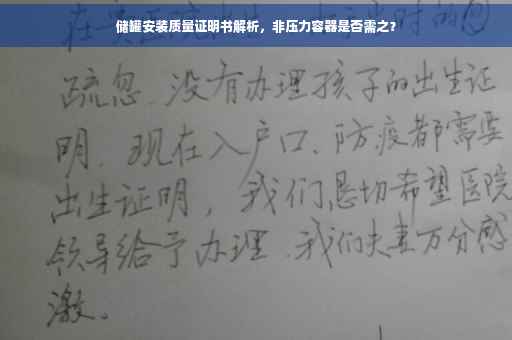 储罐安装质量证明书解析，非压力容器是否需之？
时的
疏忽、没有办理孩子的出生证
明、现在入户口、防疫都需要
出生证明，我们恳切希望医院
领导给予办理、我们夫妻万分感
激。